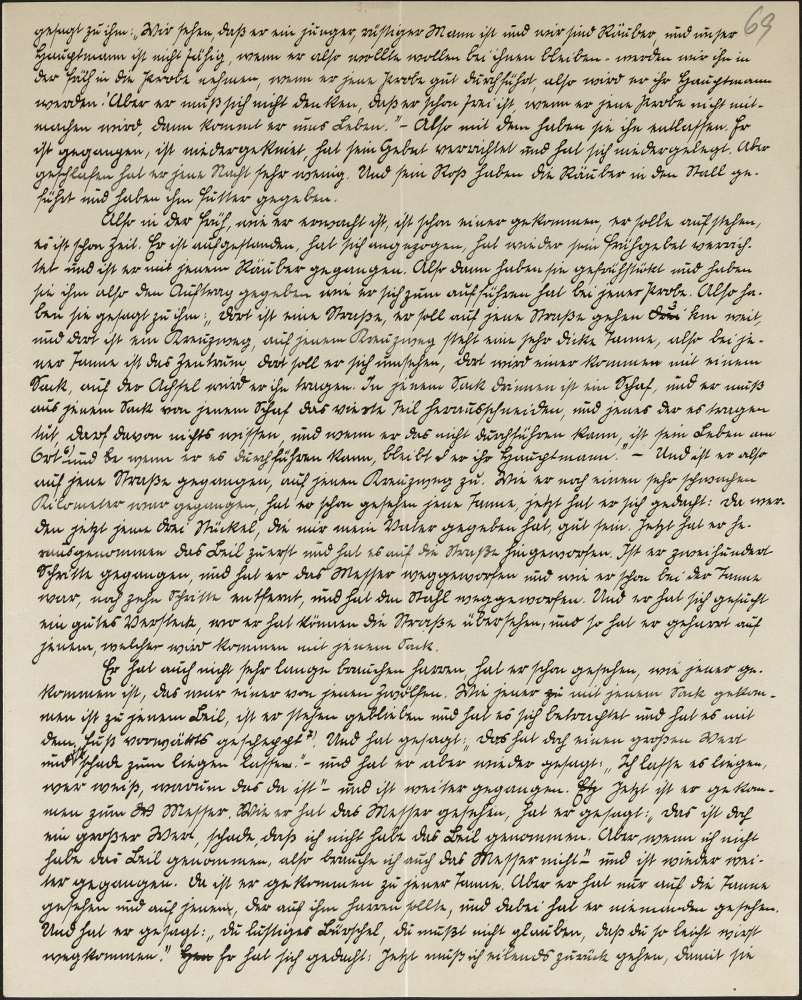 69
gesagt zu ihm: „Wir sehen, daß er ein junger, rüstiger Mann ist und wir sind Räuber, und unser
Hauptmann ist nicht fähig, wenn er also wollte wollen bei ihnen bleiben - werden wir ihn in
der Früh in die Probe nehmen, wenn er jene Probe gut durchführt, also wird er ihr Hauptmann
werden! Aber er muß sich nicht denken, daß er schon frei ist, wenn er jene Probe nicht mit-
machen wird, dann kommt er ums Leben." - Also mit dem haben sie ihn entlassen. Er
ist gegangen, ist niedergekniet, hat sein Gebet verrichtet und hat sich niedergelegt. Aber
geschlafen hat er jene Nacht sehr wenig. Und sein Roß haben die Räuber in den Stall ge-
führt und haben ihm Futter gegeben.
Also in der Früh, wie er erwacht ist, ist schon einer gekommen, er solle aufstehen,
es ist schon Zeit. Er ist aufgestanden, hat sich angezogen, hat wieder sein Frühgebet verrich-
tet und ist er mit jenem Räuber gegangen. Also dann haben sie gefrühstükt und haben
sie ihm also den Auftrag gegeben wie er sich zum aufführen hat bei jener Probe. Also ha-
ben sie gesagt zu ihm: „dort ist eine Straße, er soll auf jene Straße gehen drei km weit,
und dort ist ein Kreuzweg, auf jenem Kreuzweg steht eine sehr dicke Tanne, also bei je-
ner Tanne ist das Zentrum, dort soll er sich umsehen, dort wird einer kommen mit einem
Sack, auf der Achsel wird er ihn tragen. In jenem Sack drinnen ist ein Schaf, und er muß
aus jenem Sack von jenem Schaf das vierte Teil herausschneiden, und jener der es tragen
tut, darf davon nichts wissen, und wenn er das nicht durchführen kann, ist sein Leben am
Ort und wenn er es durchführen kann, bleibt er ihr Hauptmann." - Und ist er also
auf jene Straße gegangen, auf jenen Kreuzweg zu. Wie er noch einen sehr schwachen
Kilometer war gegangen, hat er schon gesehen jene Tanne, jetzt hat er sich gedacht: da wer-
den jetzt jene drei Stückel, die mir mein Vater gegeben hat, gut sein. Jetzt hat er he-
rausgenommen das Beil zuerst und hat es auf die Straße hingeworfen. Ist er zweihundert
Schritte gegangen, und hat er das Messer weggeworfen und wie er schon bei der Tanne
war, noch zehn Schritte entfernt, und hat den Stahl weggeworfen. Und er hat sich gesucht
ein gutes Versteck, wo er hat können die Straße übersehen, und so hat er geharrt auf
jenem, welcher wird kommen mit jenem Sack.
Er hat auch nicht sehr lange brauchen harren, hat er schon gesehen, wie jener ge-
kommen ist, das war einer von jenen Zwölfen. Wie jener mit jenem Sack gekom-
men ist zu jenem Beil, ist er stehen geblieben und hat es sich betrachtet und hat es mit
dem Fuß vorwärts gescheppt! Und hat gesagt: „Das hat doch einen großen Wert
und schade zum liegen lassen." - und hat er aber wieder gesagt: „Ich lasse es liegen,
wer weiß, warum das da ist" - und ist weiter gegangen. Jetzt ist er gekom-
men zum Messer. Wie er hat das Messer gesehen, hat er gesagt: „das ist doch
ein großer Wert, schade, daß ich nicht habe das Beil genommen. Aber, wenn ich nicht
habe das Beil genommen, also brauche ich auch das Messer nicht" - und ist wieder wei-
ter gegangen. Da ist er gekommen zu jener Tanne. Aber er hat nur auf die Tanne
gesehen und auf jenem, der auf ihm harren sollte, und dabei hat er niemanden gesehen.
Und hat er gesagt: „du lustiges Bürschel, du mußt nicht glauben, daß du so leicht wirst
wegkommen!" Er hat sich gedacht: Jetzt muß ich eilends zurück gehen, damit sie